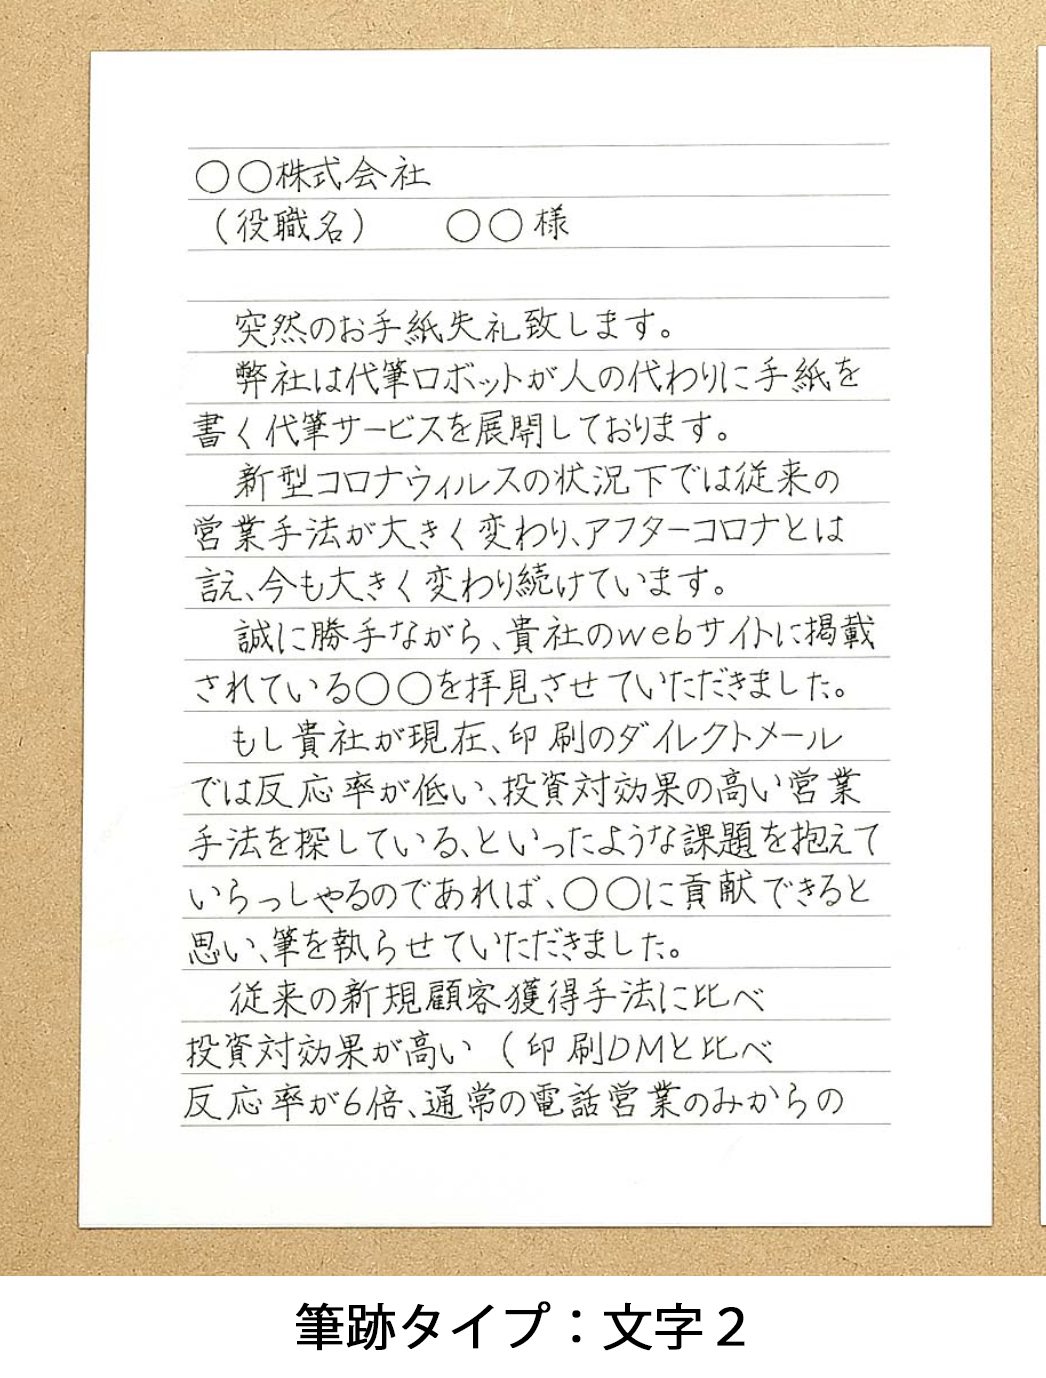 〇〇株式会社
（役職名）　〇〇様
突然のお手紙失礼致します。
弊社は代筆ロボットが人の代わりに手紙を
書く代筆サービスを展開しております。
新型コロナウィルスの状況下では従来の
営業手法が大きく変わり、アフターコロナとは
言え、今も大きく変わり続けています。
誠に勝手ながら、貴社のwebサイトに掲載
されている〇〇を拝見させていただきました。
もし貴社が現在、印刷のダイレクトメール
では反応率が低い、投資対効果の高い営業
手法を探している、といったような課題を抱えて
いらっしゃるのであれば、〇〇に貢献できると
思い、筆を執らせていただきました。
従来の新規顧客獲得手法に比べ
投資対効果が高い（印刷DMと比べ
反応率が6倍、通常の電話営業のみからの
筆跡タイプ：文字２